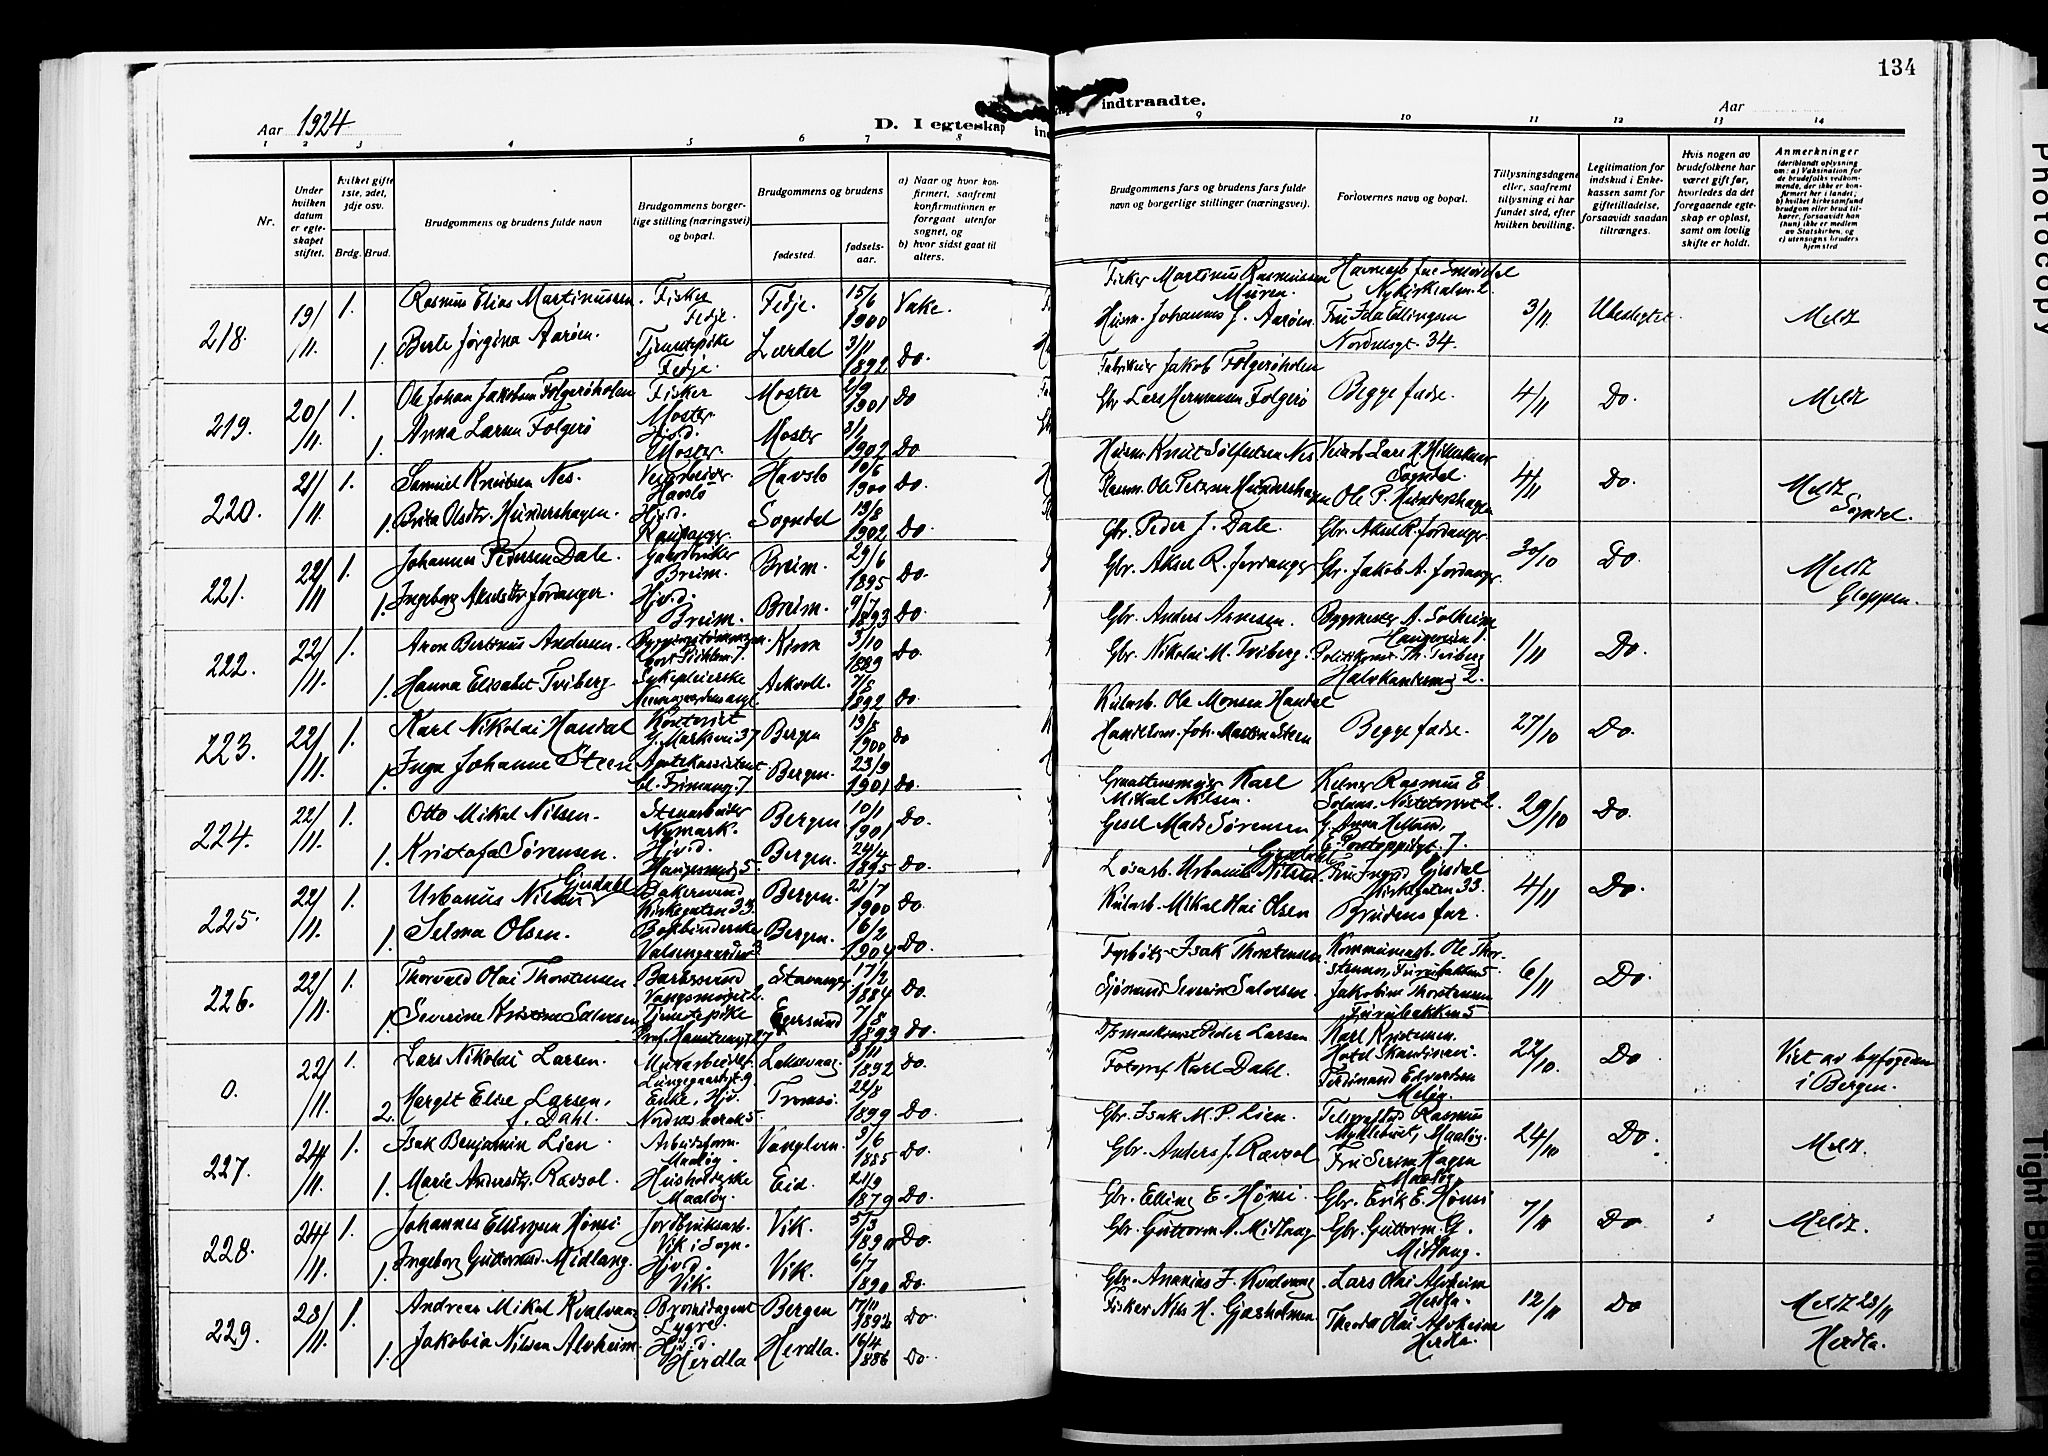 134
Aar 1924
D. I egteskap
indtraadte.
Aar
1 2 3 4 5 6 7 8 9 10 11 12 13 14
Nr.
Under hvilken datum er egteskapet stiftet.
hvilket gifte 1ste, 2det, 3dje osv.
Brdg. Brud.
Brudgommens og brudens fulde navn
Brudgommens borgerlige stilling (næringsvei) og bopæl.
Brudgommens og brudens
fødested.
fødselsaar.
a) Naar og hvor konfirmert, saafremt konfirmationen er foregaat utenfor sognet, og
b) hvor sidst gaat til alters.
Brudgommens fars og brudens fars fulde navn og borgerlige stillinger (næringsvei).
Forlovernes navn og bopæl.
Tillysningsdagene eller, saafremt tillysning ei har fundet sted, efter hvilken bevilling.
Legitimation for indskud i Enkekassen samt for giftetilladelse, forsaavidt saadan tiltrænges.
Hvis nogen av brudefolkene har været gift før, hvorledes da det foregaaende egteskap er oplast, samt om lovlig skifte er holdt.
Anmerkninger
(deriblandt oplysning om: a) Vaksination for de brudefolks vedkommende, der ikke er konfirmert her i landet; b) hvilket kirkesamfund brudgom eller brud tilhører, forsaavidt han (hun) ikke er medlem av Statskirken, og c) utensogns bruders hjemsted
218. 19/11. 1. Rasmus Elias Martinussen. Fisker Fedje. Fedje. 15/6 1900 Vake. Fisker Martinus Rasmussen Muren. Nykirkealm. 2. 3/11 Ubeslegtet. Meldt
1. Berte Jørgina Aarøen. Tjenestepike Fedje. Lærdal 3/11 1892 Do. Husm. Johannes J. Aarøen. Fru Ida Ellingsen Nordnesgt. 34.
219. 20/11. 1. Ole Johan Jakobsen Folgerøholen Fisker Moster Moster 2/9 1901 Do Fabrikeier Jakob Folgerøholen Begge fædre. 4/11 Do. Meldt
1. Anna Larsen Folgerø Hjvd. Moster. Moster 3/1 1902 Do Gbr Lars Hermansen Folgerø
220. 21/11. 1. Samuel Knutsen Nes. Veiarbeider Havslo Havslo 10/6 1900 Do. Husm. Knut Sølfestsen Nes Sogndal. 4/11 Do. Meldt Sogndal.
1. Brita Olsdtr. Hundershagen. Hjvd. Kaupanger Sogndal 13/8 1902 Do. Ole Petersen Hundershagen Ole P. Hundershagen
221. 22/11 1. Johannes Pedersen Dale. Gaardbruker Breim. Breim. 29/6 1895 Do. Gbr. Peder J. Dale. Gbr. Aksel R. Jordanger 30/10 Do. Meldt Gloppen.
1. Ingeborg Akselsdtr Jordanger. Hjvd. Breim. Breim. 9/7 1893 Do. Gbr. Aksel R. Jordanger Gbr. Jakob A. Jordanger
222. 22/11. 1. Aron Bertinus Andersen. Kinn 3/10 1889 Do. Gbr. Anders Arnesen. Bygmester A. Solheim 1/11 Do.
1. Hanna Elisabet Tviberg. Sykepleierske Askvoll. 7/5 1892 Do. Gbr. Nikolai M. Tviberg. Politikonst. Th. Tviberg 2.
223. 22/11. 1. Karl Nikolai Handal Kontorist Markevei 37 Bergen 19/5 1900 Do Kularb. Ole Monsen Handal Begge fædre. 27/10 Do.
1. Inga Johanne Steen Apotekassistent Bergen. 23/9 1901 Do. Handelsm. Joh. Madsen Steen
224. 22/11. 1. Otto Mikal Nilsen. Stenarbeider Nymark. Bergen 10/11 1901 Do. Karl Mikal Nilsen. Kelner Rasmus E 29/10 Do.
1. Kristofa Sørensen. Hjvd. Bergen. 24/4 1895 Do. Gesel Mads Sørensen Anna Helland, 7.
225. 22/11. 1. Urbanus Nilsen Gjesdahl Bakersvend Kirkegaten 33. Bergen. 21/7 1900 Do. Løsarb. Urbanus Nilsen Gjesdahl. Fru Ingrid Gjesdal Kirkegaten 33. 4/11 Do.
1. Selma Olsen. Bokbinderske Bergen. 16/2 1904 Do. Kularb. Mikal Olai Olsen Brudens far.
226. 22/11. 1. Thorvald Olai Thorstensen Stavanger 17/2 1884 Do. Fyrbøter Isak Thorstensen Kommunearb. Ole Thorstensen, Furubakken 5. 6/11 Do.
1. Severine Kristine Salvesen Tjenestepike Egersund 7/8 1893 Do. Sjømand Severin Salvesen. Jakobine Thorstensen Furubakken 5
0. 22/11. 1. Lars Nikolai Larsen. Murarbeider Lungegaardsgt. 9 Laksevaag. 1892 Do. Peder Larsen Karl Kristensen. Hotel Skandinavi. 22/10. Do Viet av byfogeden i Bergen.
2. Margit Elise Larsen, f. Dahl. Enke, Hjv. Tromsø. 22/8 1899 Do. Fotograf Karl Dahl. Ferdinand Edvardsen
227. 24/11. 1. Isak Benjamin Lien. Maaløy. Vanylven. 3/6 1885 Do. Gbr. Isak M. P. Lien. Rasmus Myklebust, Maaløy. 24/10 Do. Meldt.
1. Marie Andersdtr. Ravsol. Husholderske Maaløy. Eid. 21/9 1879 Do. Gbr. Anders J. Ravsol Fru Serine Hagen Maaløy.
228. 24/11. 1. Johannes Ellingsen Hønsi Jordbruksarb. Vik i Sogn. Vik. 5/3 1890 Do. Gbr. Elling E. Hønsi. Gbr. Erik E. Hønsi 7/11 Do Meldt.
1. Ingeborg Guttormsd. Midlang. Hjvd. Vik. Vik. 6/7 1890 Do. Gbr. Guttorm A. Midlang Gbr. Guttorm G. Midlang.
229. 28/11. 1. Andreas Mikal Kvalvaag Provisionsagent Lygre. Bergen 17/11 1892 Do. Gbr. Ananias J. Kvalvaag. Lars Olai Alvheim Herdla. 12/11 Do Meldt 28/11 Herdla.
1. Jakobia Nilsen Alvheim. Hjvd. Herdla Herdla. 16/4 1886 Do. Fisker Nils H. Gjøsholmen Thea Olai Alvheim Herdla.
Photocopy
Tight Bindi